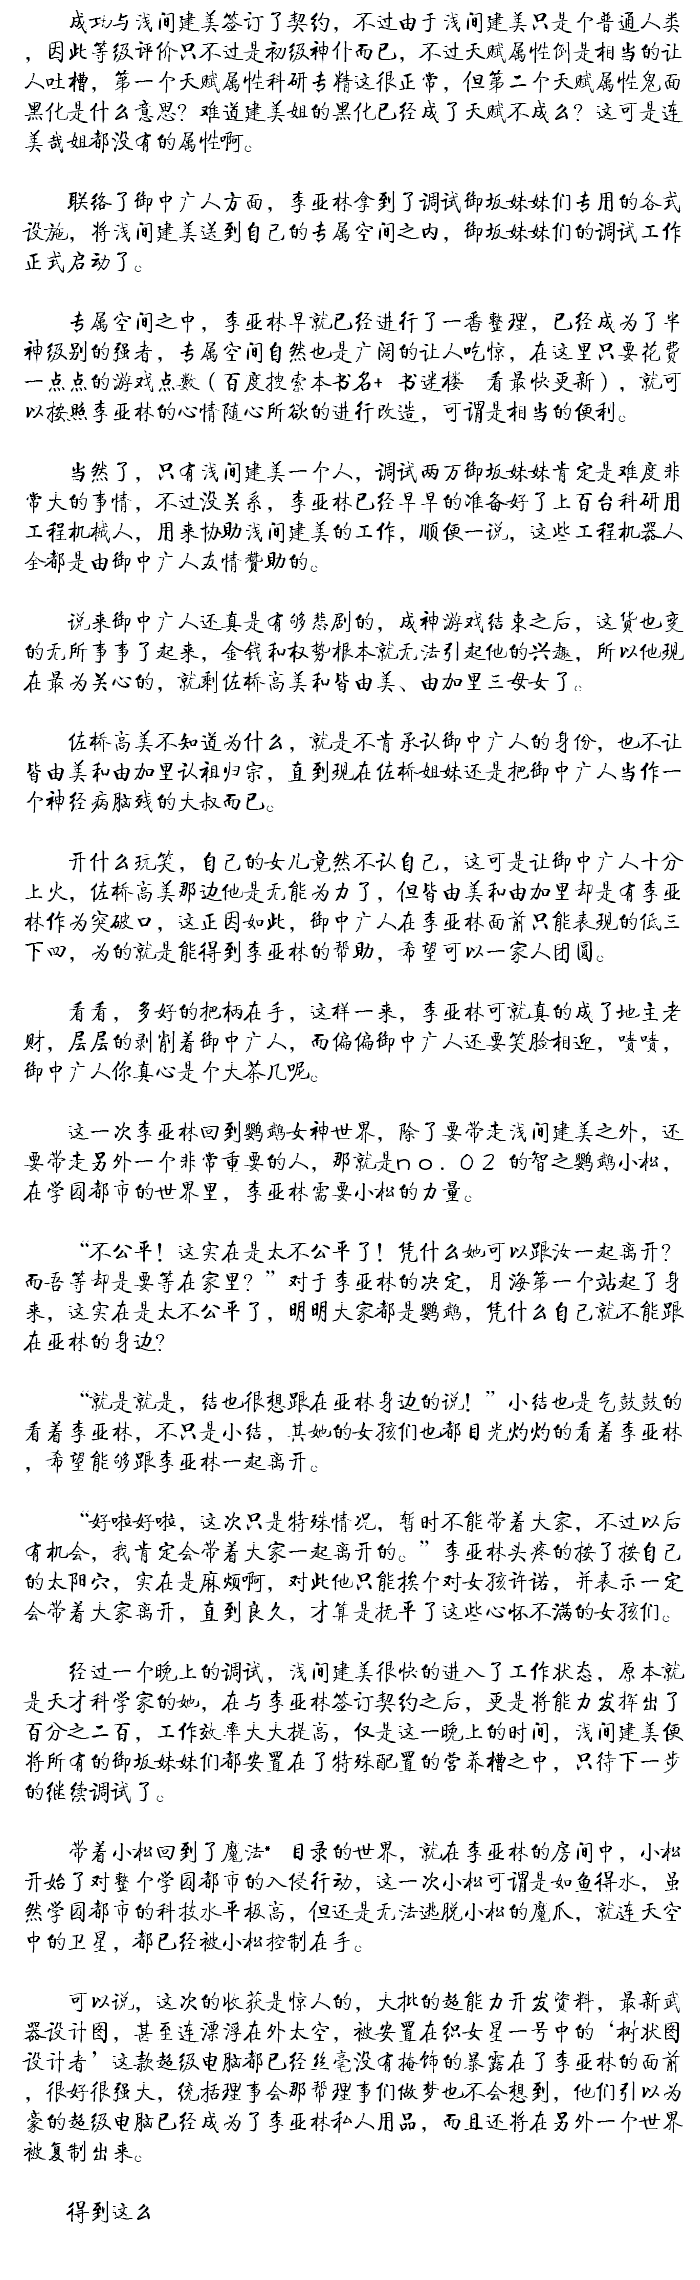 成功与浅间建美签订了契约，不过由于浅间建美只是个普通人类
，因此等级评价只不过是初级神仆而已，不过天赋属性倒是相当的让
人吐槽，第一个天赋属性科研专精这很正常，但第二个天赋属性鬼面
黑化是什么意思？难道建美姐的黑化已经成了天赋不成么？这可是连
美哉姐都没有的属性啊。
联络了御中广人方面，李亚林拿到了调试御坂妹妹们专用的各式
设施，将浅间建美送到自己的专属空间之内，御坂妹妹们的调试工作
正式启动了。
专属空间之中，李亚林早就已经进行了一番整理，已经成为了半
神级别的强者，专属空间自然也是广阔的让人吃惊，在这里只要花费
一点点的游戏点数（百度搜索本书名+ 书迷楼 看最快更新），就可
以按照李亚林的心情随心所欲的进行改造，可谓是相当的便利。
当然了，只有浅间建美一个人，调试两万御坂妹妹肯定是难度非
常大的事情，不过没关系，李亚林已经早早的准备好了上百台科研用
工程机械人，用来协助浅间建美的工作，顺便一说，这些工程机器人
全都是由御中广人友情赞助的。
说来御中广人还真是有够悲剧的，成神游戏结束之后，这货也变
的无所事事了起来，金钱和权势根本就无法引起他的兴趣，所以他现
在最为关心的，就剩佐桥高美和皆由美、由加里三母女了。
佐桥高美不知道为什么，就是不肯承认御中广人的身份，也不让
皆由美和由加里认祖归宗，直到现在佐桥姐妹还是把御中广人当作一
个神经病脑残的大叔而已。
开什么玩笑，自己的女儿竟然不认自己，这可是让御中广人十分
上火，佐桥高美那边他是无能为力了，但皆由美和由加里却是有李亚
林作为突破口，这正因如此，御中广人在李亚林面前只能表现的低三
下四，为的就是能得到李亚林的帮助，希望可以一家人团圆。
看看，多好的把柄在手，这样一来，李亚林可就真的成了地主老
财，层层的剥削着御中广人，而偏偏御中广人还要笑脸相迎，啧啧，
御中广人你真心是个大茶几呢。
这一次李亚林回到鹡鸰女神世界，除了要带走浅间建美之外，还
要带走另外一个非常重要的人，那就是no．02 的智之鹡鸰小松，
在学园都市的世界里，李亚林需要小松的力量。
“不公平！这实在是太不公平了！凭什么她可以跟汝一起离开？
而吾等却是要等在家里？”对于李亚林的决定，月海第一个站起了身
来，这实在是太不公平了，明明大家都是鹡鸰，凭什么自己就不能跟
在亚林的身边？
“就是就是，结也很想跟在亚林身边的说！”小结也是气鼓鼓的
看着李亚林，不只是小结，其她的女孩们也都目光灼灼的看着李亚林
，希望能够跟李亚林一起离开。
“好啦好啦，这次只是特殊情况，暂时不能带着大家，不过以后
有机会，我肯定会带着大家一起离开的。”李亚林头疼的按了按自己
的太阳穴，实在是麻烦啊，对此他只能挨个对女孩许诺，并表示一定
会带着大家离开，直到良久，才算是抚平了这些心怀不满的女孩们。
经过一个晚上的调试，浅间建美很快的进入了工作状态，原本就
是天才科学家的她，在与李亚林签订契约之后，更是将能力发挥出了
百分之二百，工作效率大大提高，仅是这一晚上的时间，浅间建美便
将所有的御坂妹妹们都安置在了特殊配置的营养槽之中，只待下一步
的继续调试了。
带着小松回到了魔法* 目录的世界，就在李亚林的房间中，小松
开始了对整个学园都市的入侵行动，这一次小松可谓是如鱼得水，虽
然学园都市的科技水平极高，但还是无法逃脱小松的魔爪，就连天空
中的卫星，都已经被小松控制在手。
可以说，这次的收获是惊人的，大批的超能力开发资料，最新武
器设计图，甚至连漂浮在外太空，被安置在织女星一号中的‘树状图
设计者’这款超级电脑都已经丝毫没有掩饰的暴露在了李亚林的面前
，很好很强大，统括理事会那帮理事们做梦也不会想到，他们引以为
豪的超级电脑已经成为了李亚林私人用品，而且还将在另外一个世界
被复制出来。
得到这么